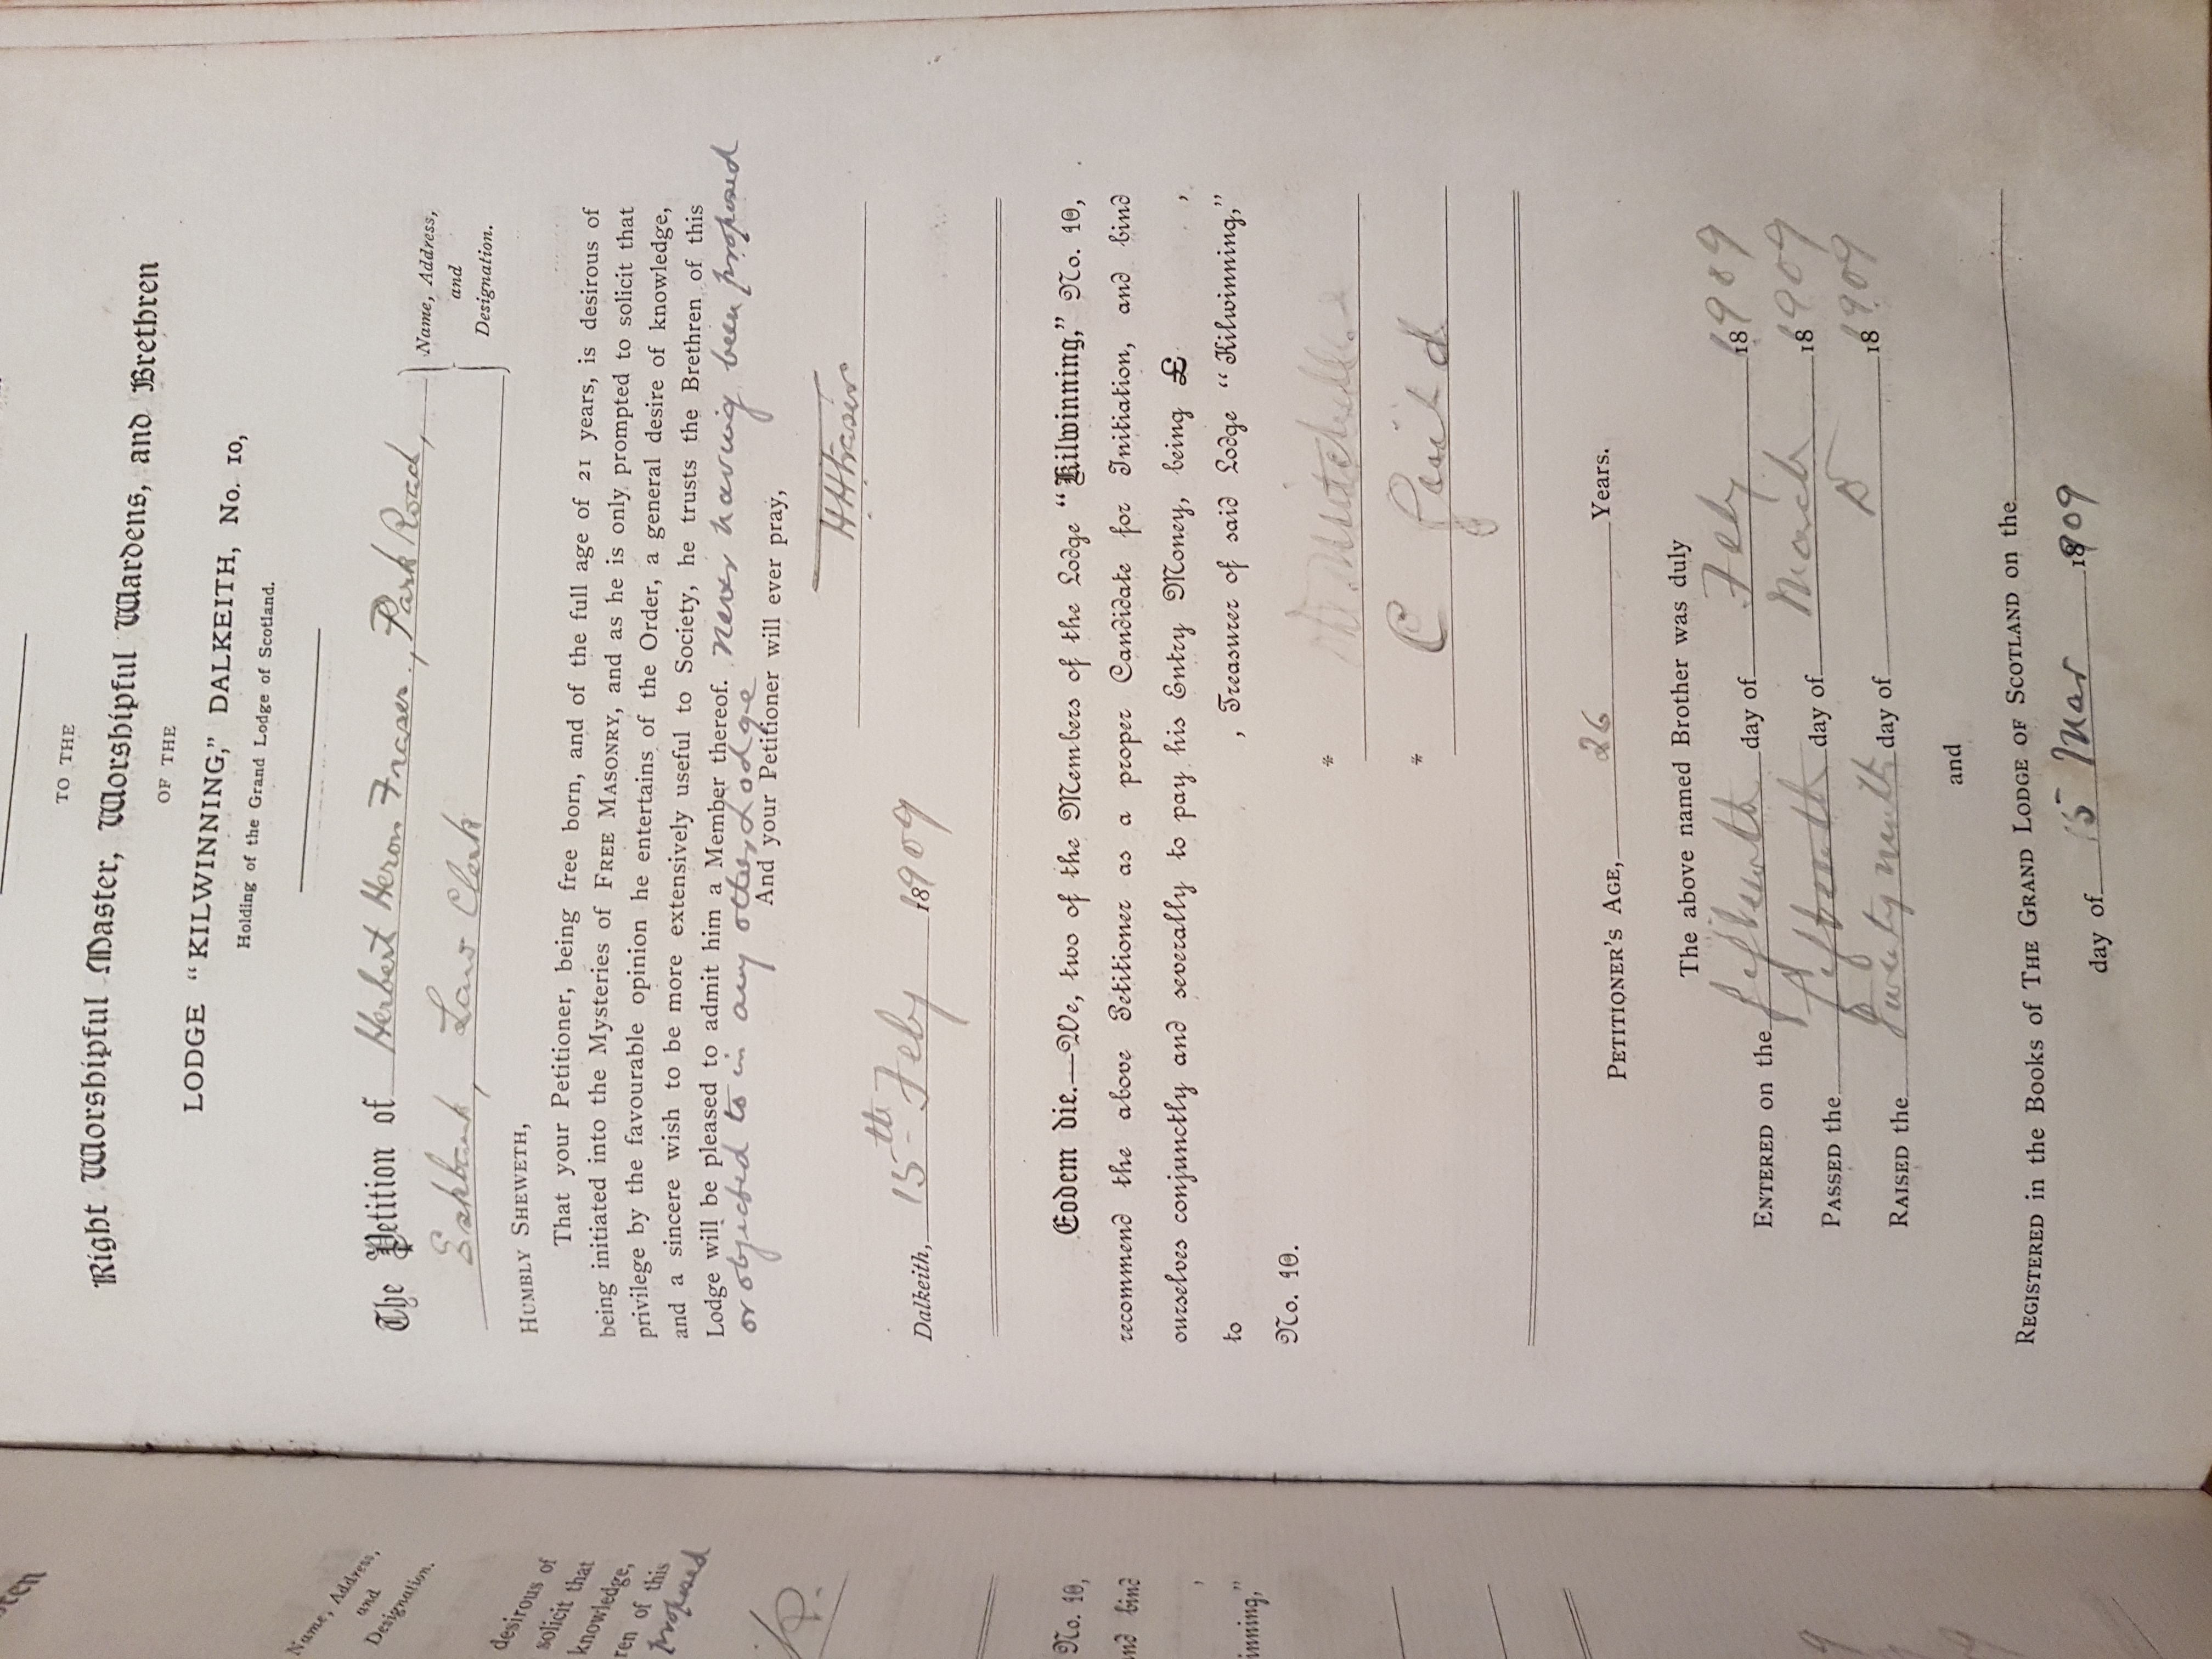 TO THE
Right Worshipful Master, Worshipful Wardens, and Brethren
OF THE
LODGE "KILWINNING," DALKEITH, No. 10,
Holding of the Grand Lodge of Scotland.
The Petition of Herbert Heron Fraser, Park Road,
Eskbank, Law Clerk
Name, Address,
and
Designation.
HUMBLY SHEWETH,
That your Petitioner, being free born, and of the full age of 21 years, is desirous of
being initiated into the Mysteries of FREE MASONRY, and as he is only prompted to solicit that
privilege by the favourable opinion he entertains of the Order, a general desire of knowledge,
and a sincere wish to be more extensively useful to Society, he trusts the Brethren of this
Lodge will be pleased to admit him a Member thereof. never having been proposed
or objected to in any other Lodge
And your Petitioner will ever pray,
HHFraser
Dalkeith, 15th Feby 1909
Eodem die.—We, two of the Members of the Lodge "Kilwinning," No. 10,
recommend the above Petitioner as a proper Candidate for Initiation, and bind
ourselves conjunctly and severally to pay his Entry Money, being £ ,
to , Treasurer of said Lodge "Kilwinning,"
No. 10.
*
* C
PETITIONER'S AGE, 26 Years.
The above named Brother was duly
ENTERED on the fifteenth day of Feby 1909
PASSED the day of March 1909
RAISED the day of Do 1909
and
REGISTERED in the Books of THE GRAND LODGE OF SCOTLAND on the
day of 15 Mar 1909
Name, Address,
and
Designation.
desirous of
solicit that
knowledge,
ren of this
proposed
No. 10,
nd bind
,
inning,"